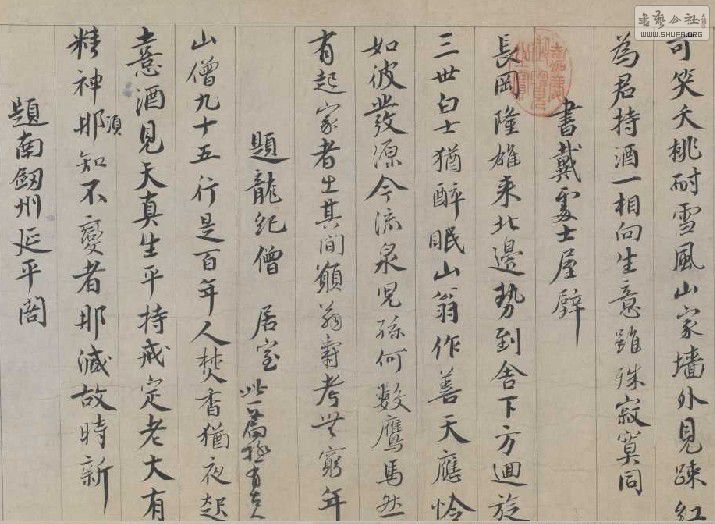 可笑夭桃耐雪風山家墻外見疎紅
為君持酒一相向生意雖殊寂寞同
書戴處士屋壁
長岡隆雄來北邊勢到舍下方迴旋
三世白士猶醉眠山翁作善天應憐
如彼發源今流泉兒孫何數鷹馬然
有起家者出其間願翁壽考無窮年
題龍紀僧居室 此一篇極有古人
山僧九十五行是百年人焚香猶夜起
憙酒見天真生平持戒定老大有
精神那須知不變者那減故時新
題南劔州延平閣
书艺公社
WWW.SHUFA.ORG